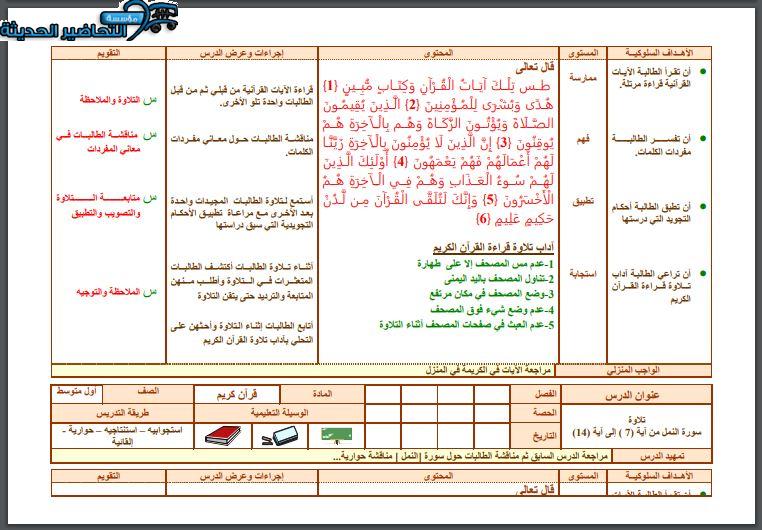 مؤسسة
التحاضير الحديثة
الأهداف السلوكية
المستوى
المحتوى
إجراءات وعرض الدرس
التقويم
أن تقرأ الطالبة الآيات
القرآنية قراءة مرتلة.
ممارسة
أن تفسر الطالبة
مفردات الكلمات.
فهم
أن تطبق الطالبة أحكام
التجويد التي درستها
تطبيق
أن تراعي الطالبة آداب
تلاوة قراءة القرآن
الكريم
استجابة
قال تعالى
طس تِلْكَ آيَاتُ الْقُرْآنِ وَكِتَابٍ مُّبِينٍ {1}
هُدًى وَبُشْرَى لِلْمُؤْمِنِينَ {2} الَّذِينَ يُقِيمُونَ
الصَّلَاةَ وَيُؤْتُونَ الزَّكَاةَ وَهُم بِالْآخِرَةِ هُمْ
يُوقِنُونَ {3} إِنَّ الَّذِينَ لَا يُؤْمِنُونَ بِالْآخِرَةِ زَيَّنَّا
لَهُمْ أَعْمَالَهُمْ فَهُمْ يَعْمَهُونَ {4} أُوْلَئِكَ الَّذِينَ
لَهُمْ سُوءُ الْعَذَابِ وَهُمْ فِي الْآخِرَةِ هُمُ
الْأَخْسَرُونَ {5} وَإِنَّكَ لَتُلَقَّى الْقُرْآنَ مِن لَّدُنْ
حَكِيمٍ عَلِيمٍ {6}
آداب تلاوة قراءة القرآن الكريم
1-عدم مس المصحف إلا على طهارة
2-تناول المصحف باليد اليمنى
3-وضع المصحف في مكان مرتفع
4-عدم وضع شيء فوق المصحف
5-عدم العبث في صفحات المصحف أثناء التلاوة
قراءة الآيات القرآنية من قبلي ثم من قبل
الطالبات واحدة تلو الأخرى.
مناقشة الطالبات حول معاني مفردات
الكلمات.
أستمع لتلاوة الطالبات المجيدات واحدة
بعد الأخرى مع مراعاة تطبيق الأحكام
التجويدية التي سبق دراستها
أثناء تلاوة الطالبات أكتشف الطالبات
المتعثرات في التلاوة وأطلب منهن
المتابعة والترديد حتى يتقن التلاوة
أتابع الطالبات إثناء التلاوة وأحثهن على
التحلي بآداب تلاوة القرآن الكريم
س التلاوة والملاحظة
س مناقشة الطالبات في
معاني المفردات
س متابعة التلاوة
والتصويب والتطبيق
س الملاحظة والتوجيه
الواجب المنزلي
مراجعة الآيات في الكريمة في المنزل
عنوان الدرس
الفصل
المادة
قرآن كريم
الصف
أول متوسط
تلاوة
سورة النمل من آية (7 ) إلى آية (14)
الحصة
الوسيلة التعليمية
طريقة التدريس
التاريخ
استجوابيه – استنتاجيه – حوارية -
إلقائية
تمهيد الدرس
مراجعة الدرس السابق ثم مناقشة الطالبات حول سورة [النمل] مناقشة حوارية...
الأهداف السلوكية
المستوى
المحتوى
إجراءات وعرض الدرس
التقويم
أن تقرأ الطالبة الآيات
قال تعالى